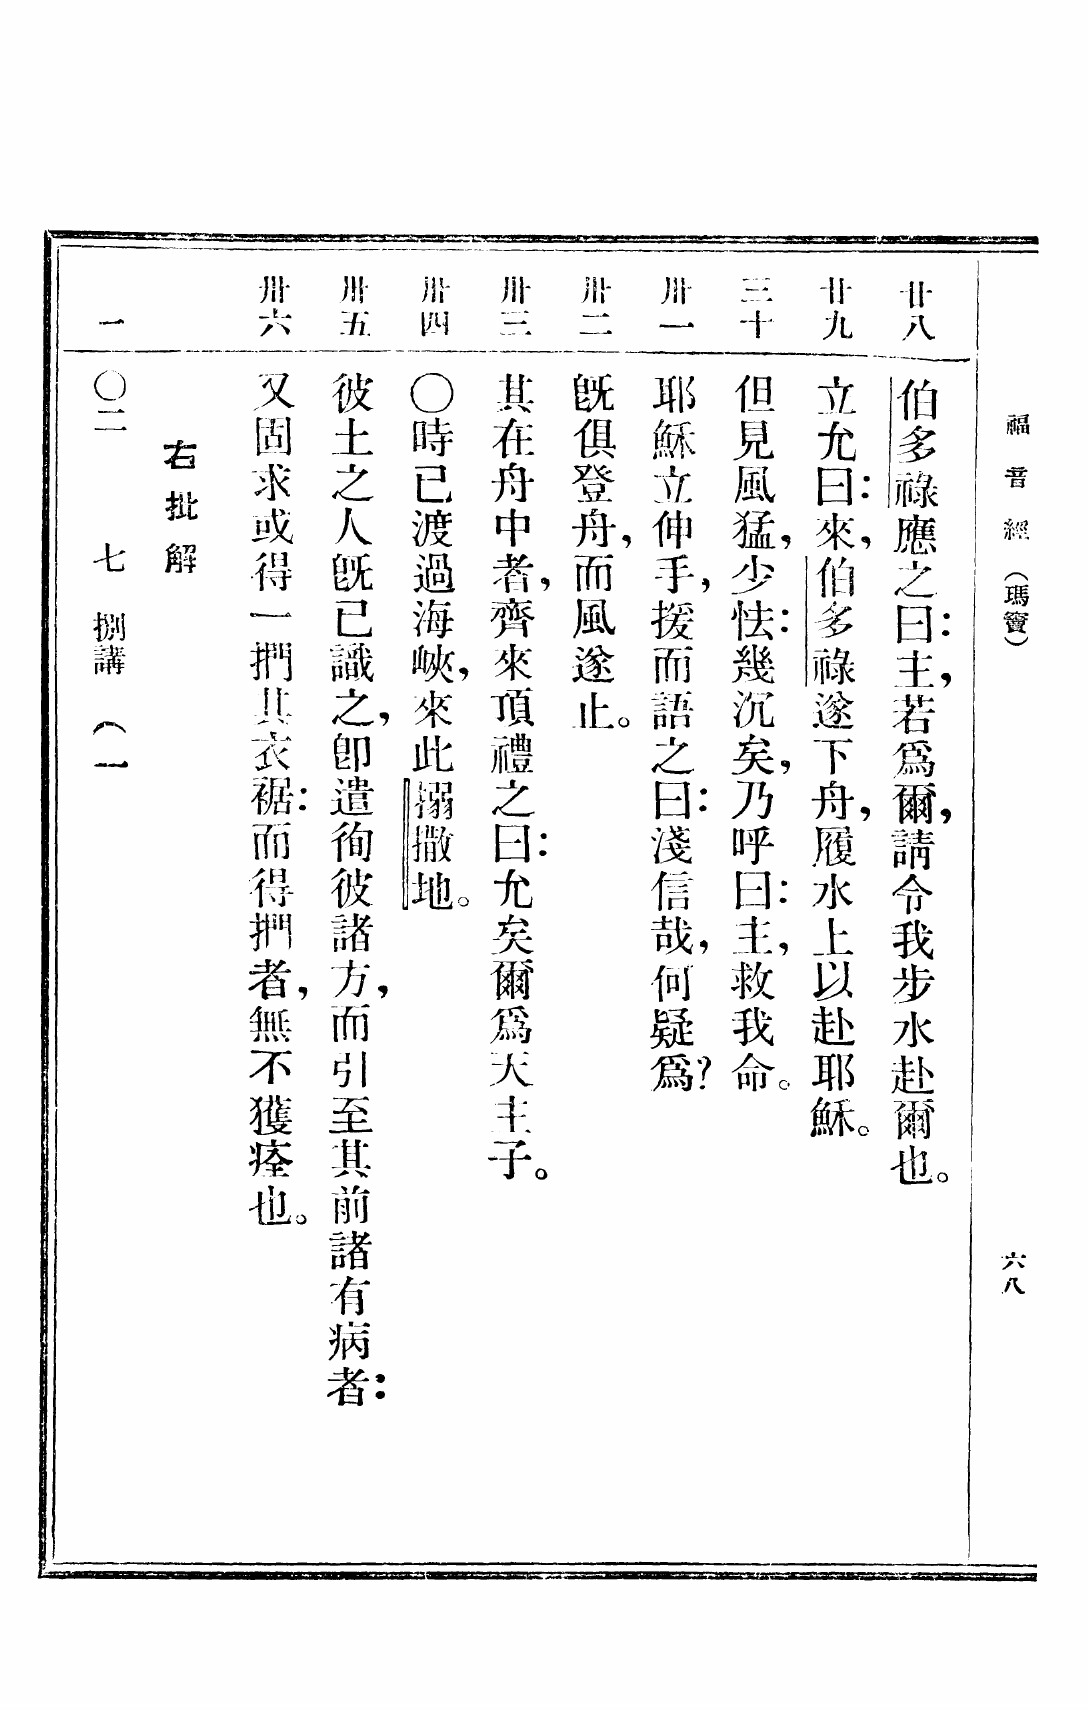 福音經（瑪竇） 六八
廿八 伯多祿應之曰：主，若爲爾，請令我步水赴爾也。
廿九 立允曰：來，伯多祿遂下舟，履水上以赴耶穌。
三十 但見風猛，少怯：幾沉矣，乃呼曰：主，救我命。
卅一 耶穌立伸手，援而語之曰：淺信哉，何疑爲？
卅二 旣俱登舟，而風遂止。
卅三 其在舟中者，齊來頂禮之曰：允矣爾爲天主子。
卅四 〇時已渡過海峽，來此搦撒地。
卅五 彼土之人旣已識之，卽遣徇彼諸方，而引至其前諸有病者：
卅六 又固求或得一捫其衣裾：而得捫者，無不獲痊也。
右批解
一 〇二 七 捌講 （一